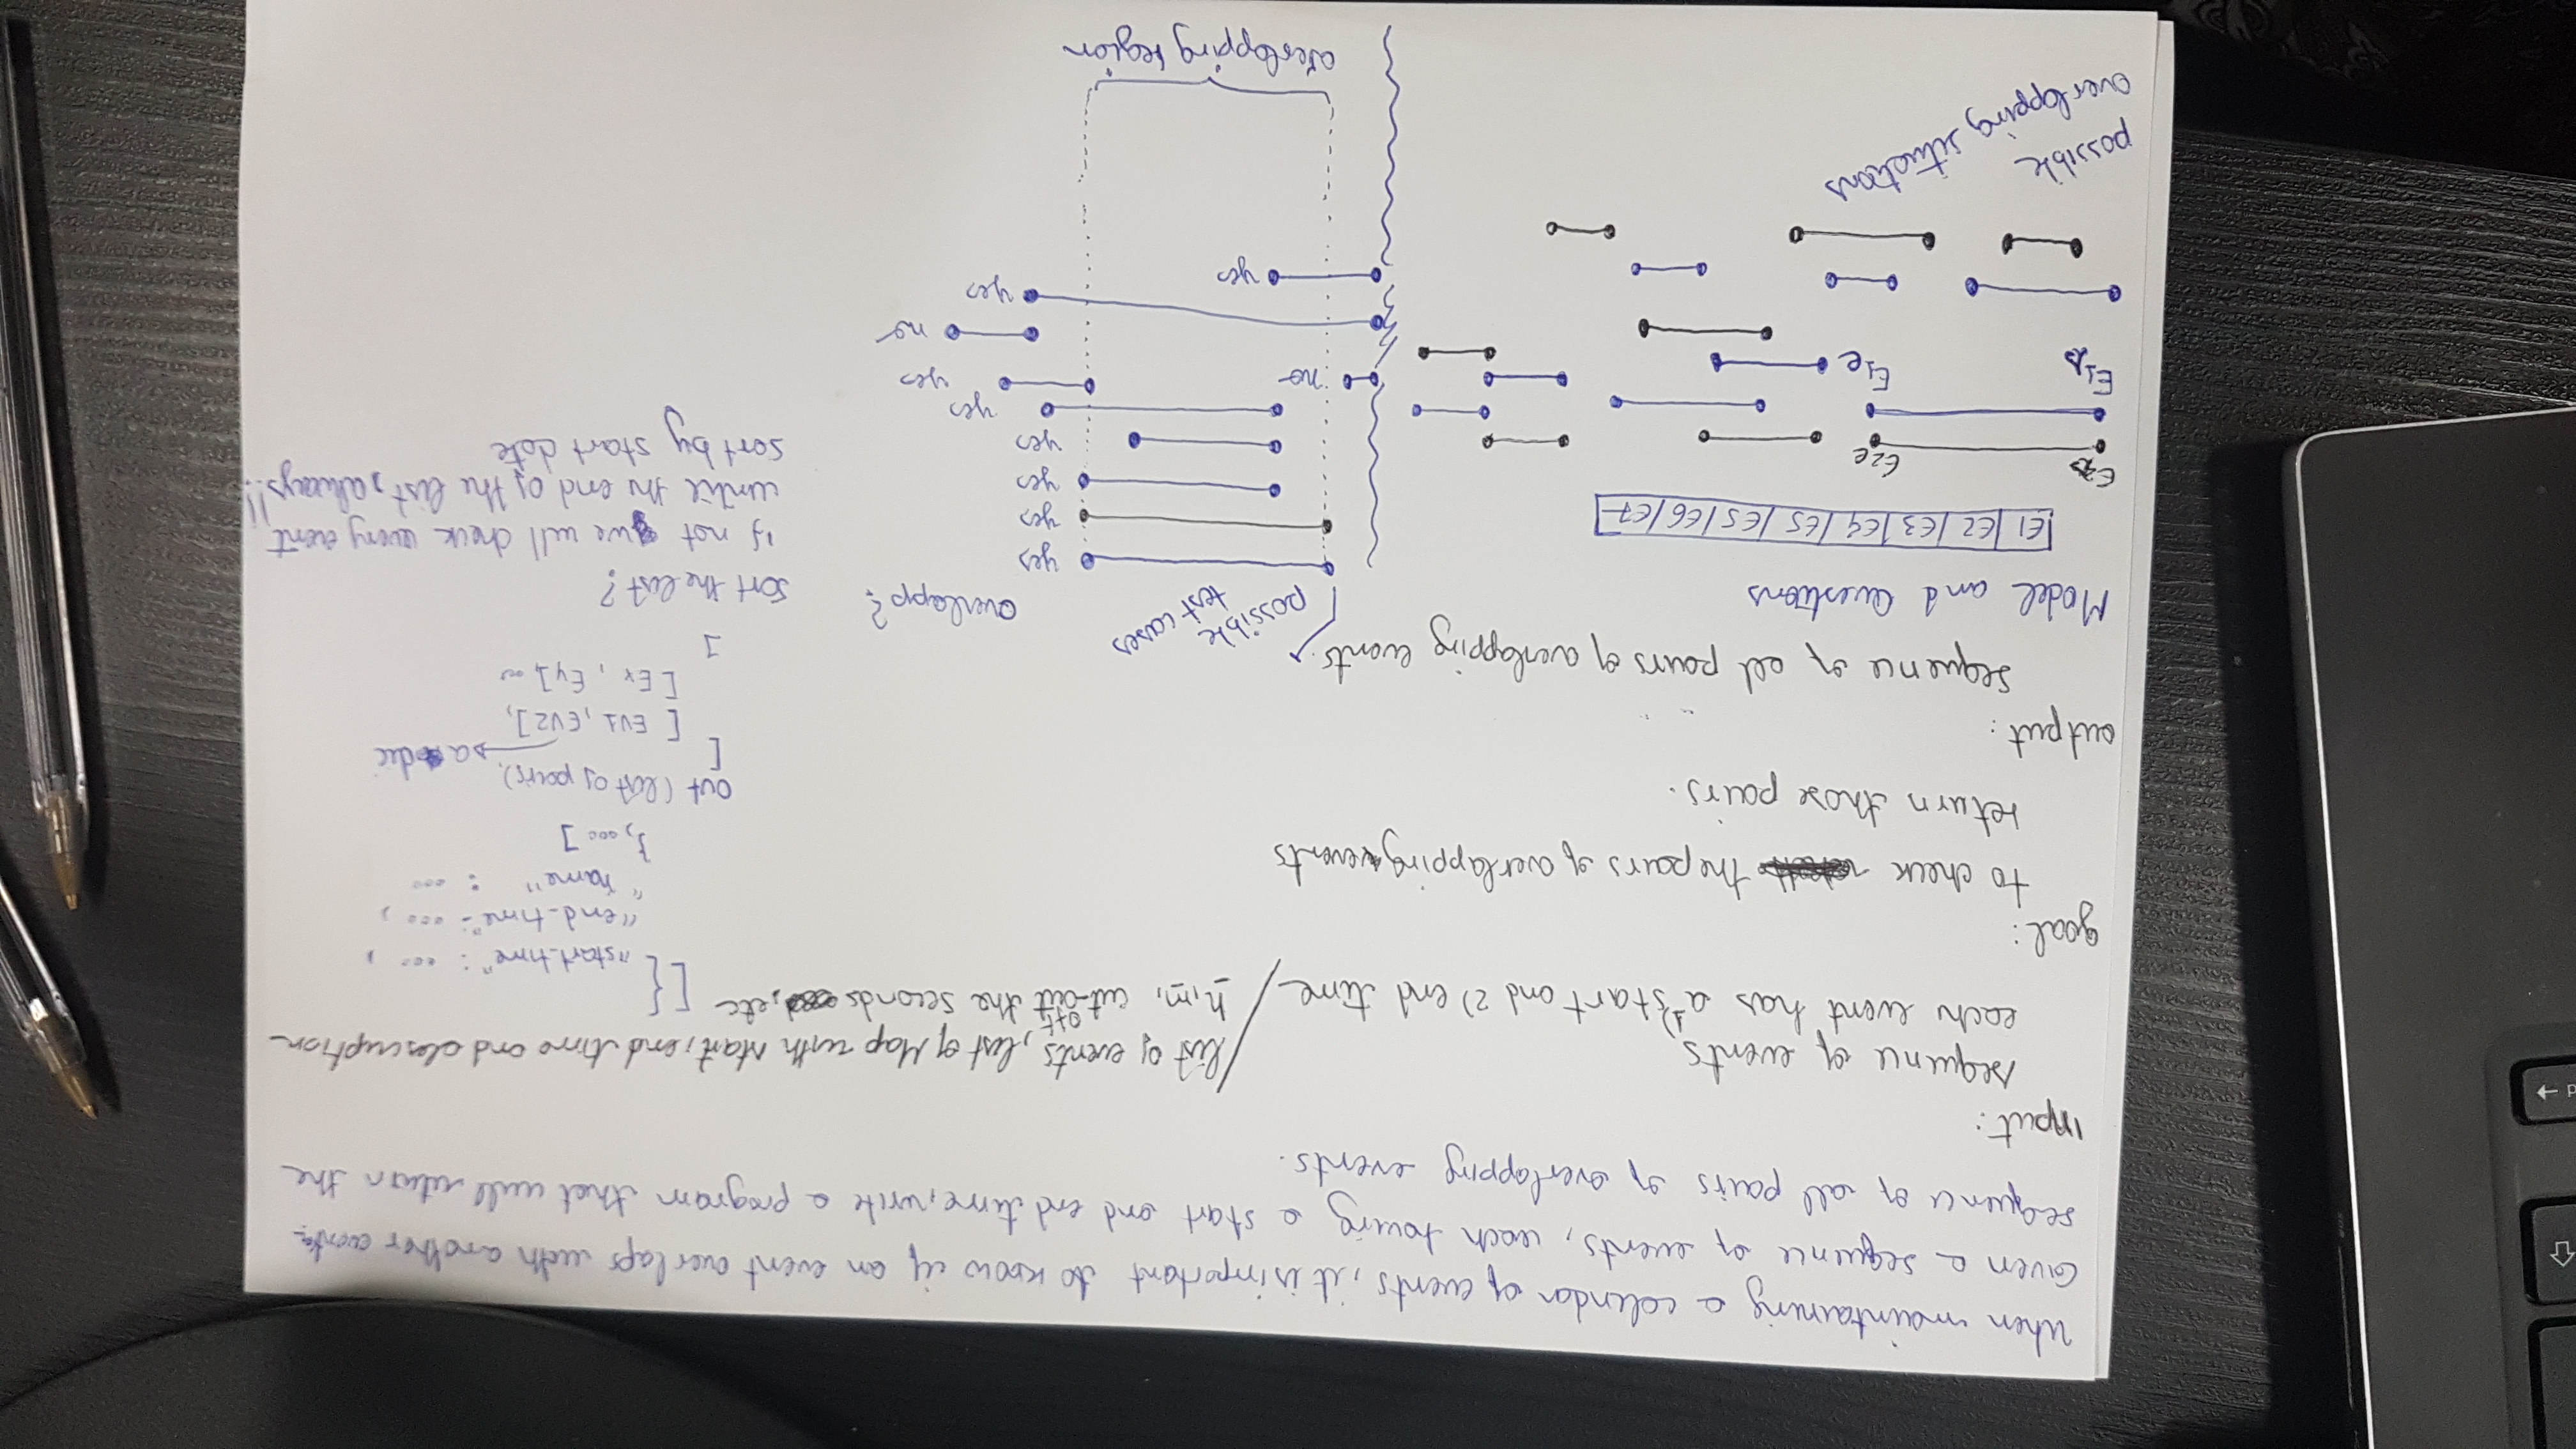 When maintaining a calendar of events, it is important to know if an event overlaps with another event.
Given a sequence of events, each having a start and end time, write a program that will return the
sequence of all pairs of overlapping events.
input:
sequence of events
each event has a 1) start and 2) end time
/ list of events, list of Map with start, end time and description
h, m, cut-out off the seconds, etc
[{
"start_time": ...,
"end_time": ...,
"name" : ...
}, ...]
goal:
to check the pairs of overlapping events
return those pairs.
out (list of pairs).
[
[EV1, EV2], → a dic
[Ex, Ey], ...
]
output:
sequence of all pairs of overlapping events.
Model and Questions
possible
test cases
overlapp?
E1 E2 E3 E4 E5 E5 E6 E7
E2s E2e
E1s E1e
yes
yes
yes
yes
yes
no yes
no
yes
yes
possible
overlapping situations
overlapping region
Sort the list?
if not we will check every event
until the end of the list, always!!
sort by start date
d →